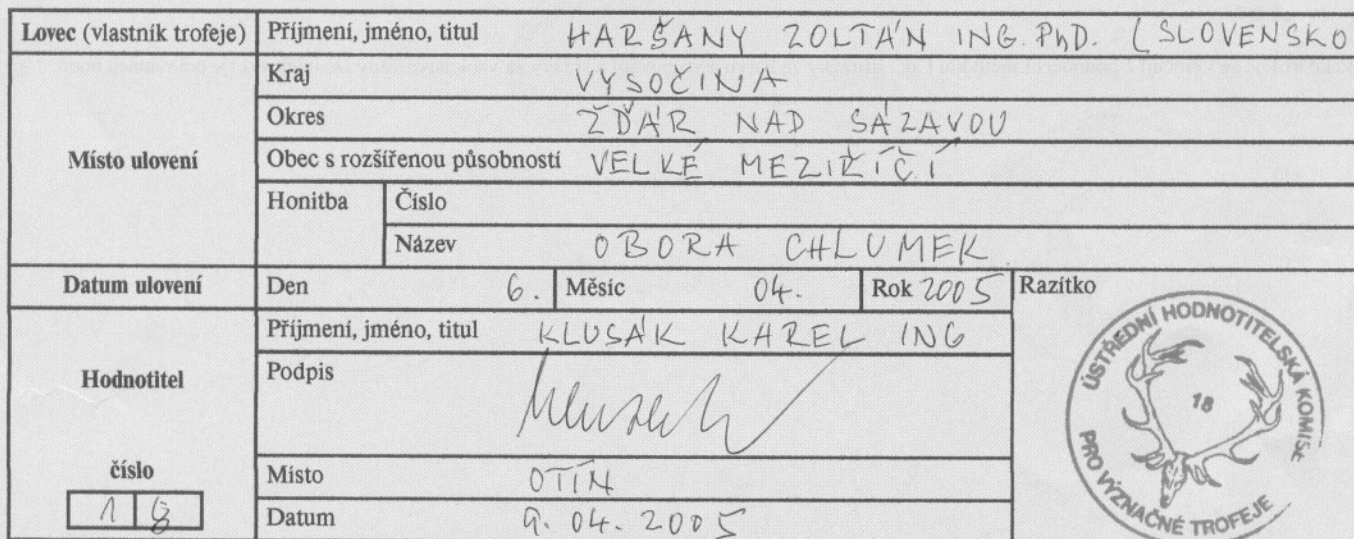 Lovec (vlastník trofeje) Příjmení, jméno, titul HARŠANY ZOLTÁN ING. PhD. (SLOVENSKO
Místo ulovení
Kraj VYSOČINA
Okres ŽĎÁR NAD SÁZAVOU
Obec s rozšířenou působností VELKÉ MEZIŘÍČÍ
Honitba Číslo
Název OBORA CHLUMEK
Datum ulovení Den 6. Měsíc 04. Rok 2005 Razítko
Hodnotitel
Příjmení, jméno, titul KLUSÁK KAREL ING
Podpis
číslo
18
Místo OTÍN
Datum 9. 04. 2005
ÚSTŘEDNÍ HODNOTITELSKÁ KOMISE
18
PRO VÝZNAČNÉ TROFEJE